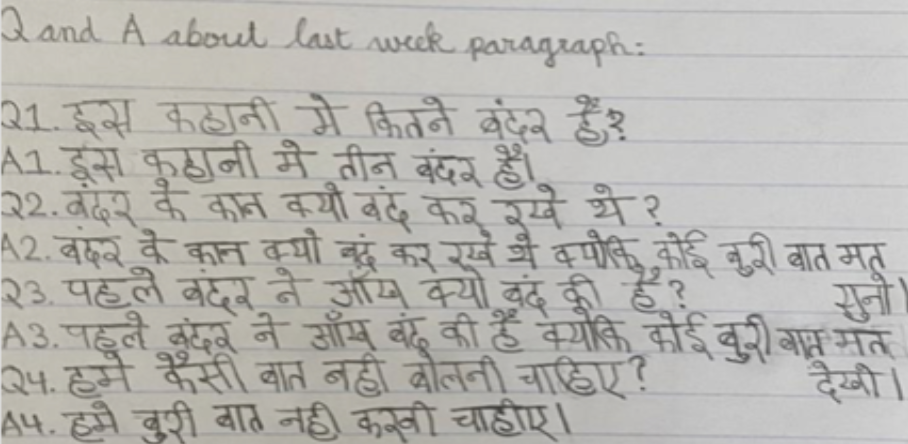 Q and A about last week paragraph:
Q1. इस कहानी मे कितने बंदर हैं?
A1. इस कहानी मे तीन बंदर हैं।
Q2. बंदर के कान क्यो बंद कर रखे थे?
A2. बंदर के कान क्यो बंद कर रखे थे क्योकि कोई बुरी बात मत सुनो।
Q3. पहले बंदर ने आँख क्यो बंद की है?
A3. पहले बंदर ने आँख बंद की है क्योकि कोई बुरी बात मत देखो।
Q4. हमे कैसी बात नही बोलनी चाहिए?
A4. हमे बुरी बात नही करनी चाहीए।